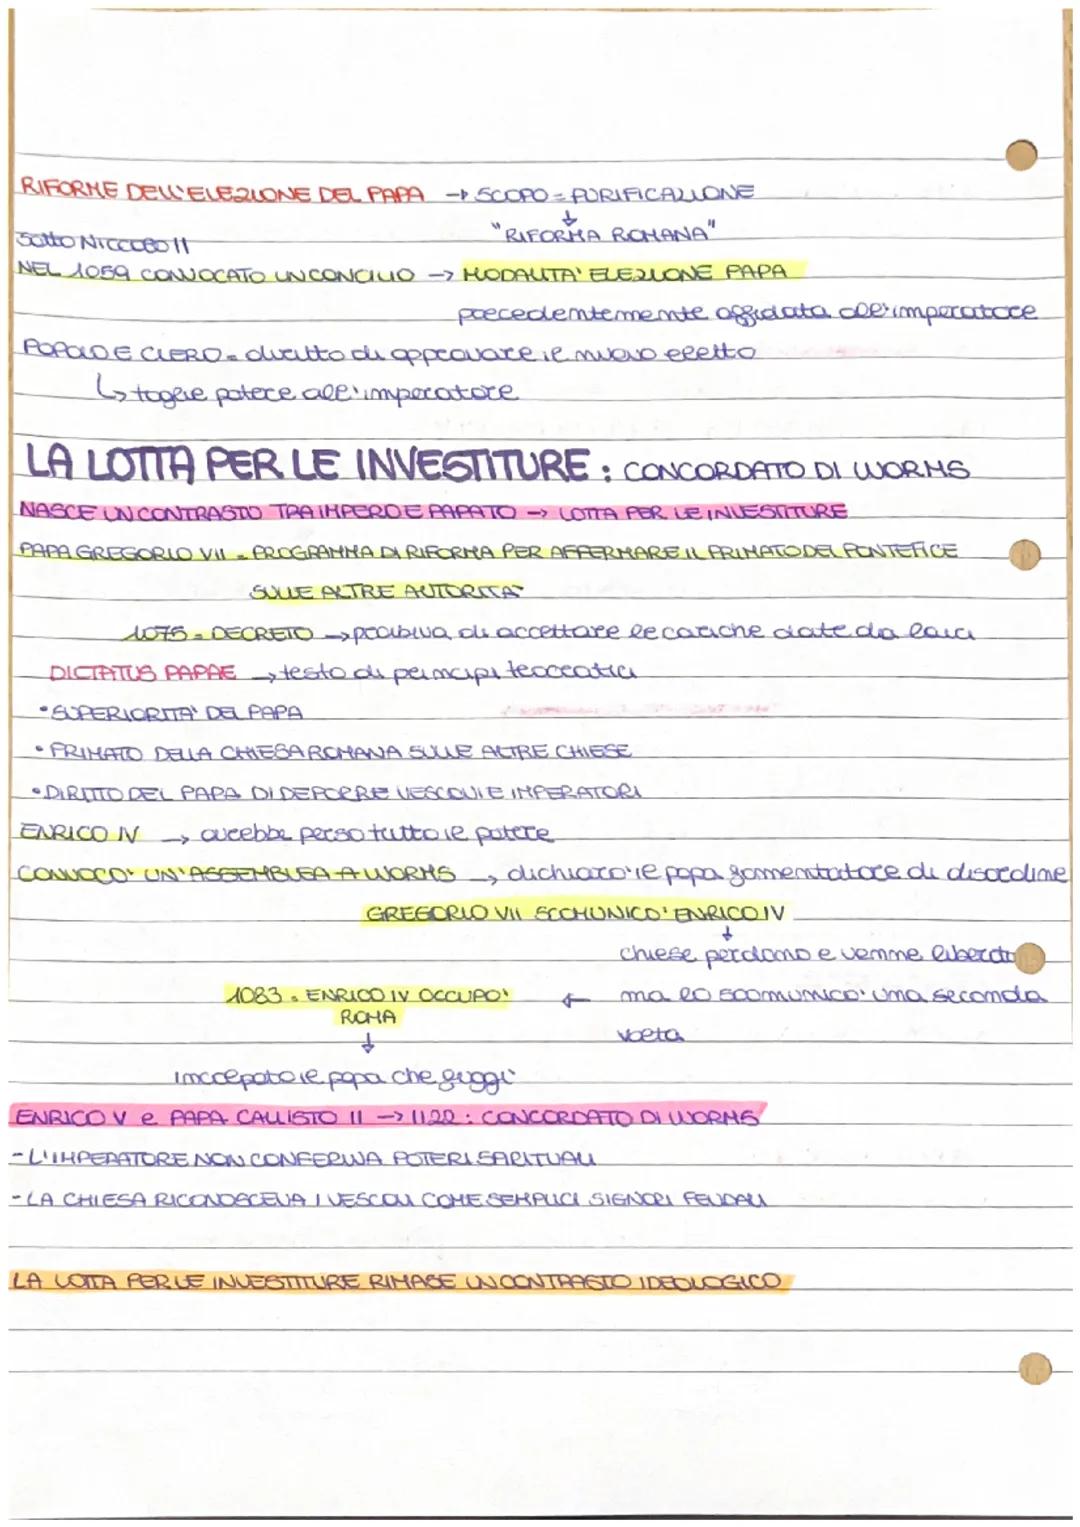 RIFORME DELL'ELEZIONE DEL PAPA → SCOPO = PURIFICAZIONE
↓
"RIFORMA ROMANA"
SOTTO NICCOLO II
NEL 1059 CONVOCATO UN CONCILIO → MODALITA' ELEZIONE PAPA
precedentemente affidata all'imperatore
POPOLO E CLERO = diritto di approvare il nuovo eletto
↳ toglie potere all'imperatore
LA LOTTA PER LE INVESTITURE: CONCORDATO DI WORMS
NASCE UN CONTRASTO TRA IMPERO E PAPATO → LOTTA PER LE INVESTITURE
PAPA GREGORIO VII = PROGRAMMA DI RIFORMA PER AFFERMARE IL PRIMATO DEL PONTEFICE
SULLE ALTRE AUTORITA'
1075 = DECRETO → proibiva di accettare le cariche date da laici
DICTATUS PAPAE → testo di principi teocratici
• SUPERIORITA' DEL PAPA
• PRIMATO DELLA CHIESA ROMANA SULLE ALTRE CHIESE
• DIRITTO DEL PAPA DI DEPORRE VESCOVI E IMPERATORI
ENRICO IV → avrebbe perso tutto il potere
CONVOCO' UN'ASSEMBLEA A WORMS → dichiarò il papa fomentatore di disordine
GREGORIO VII SCOMUNICO' ENRICO IV
↓
chiese perdono e venne liberato
1083 = ENRICO IV OCCUPO' ← ma lo scomunicò una seconda
ROMA volta
↓
il papa che fuggì
ENRICO V e PAPA CALLISTO II → 1122: CONCORDATO DI WORMS
- L'IMPERATORE NON CONFERIVA POTERI SPIRITUALI
- LA CHIESA RICONOSCEVA I VESCOVI COME SEMPLICI SIGNORI FEUDALI
LA LOTTA PER LE INVESTITURE RIMASE UN CONTRASTO IDEOLOGICO